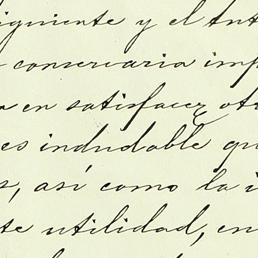 iguiente y el
conservaria
en satisfacer
es indudable
así como la
utilidad, en